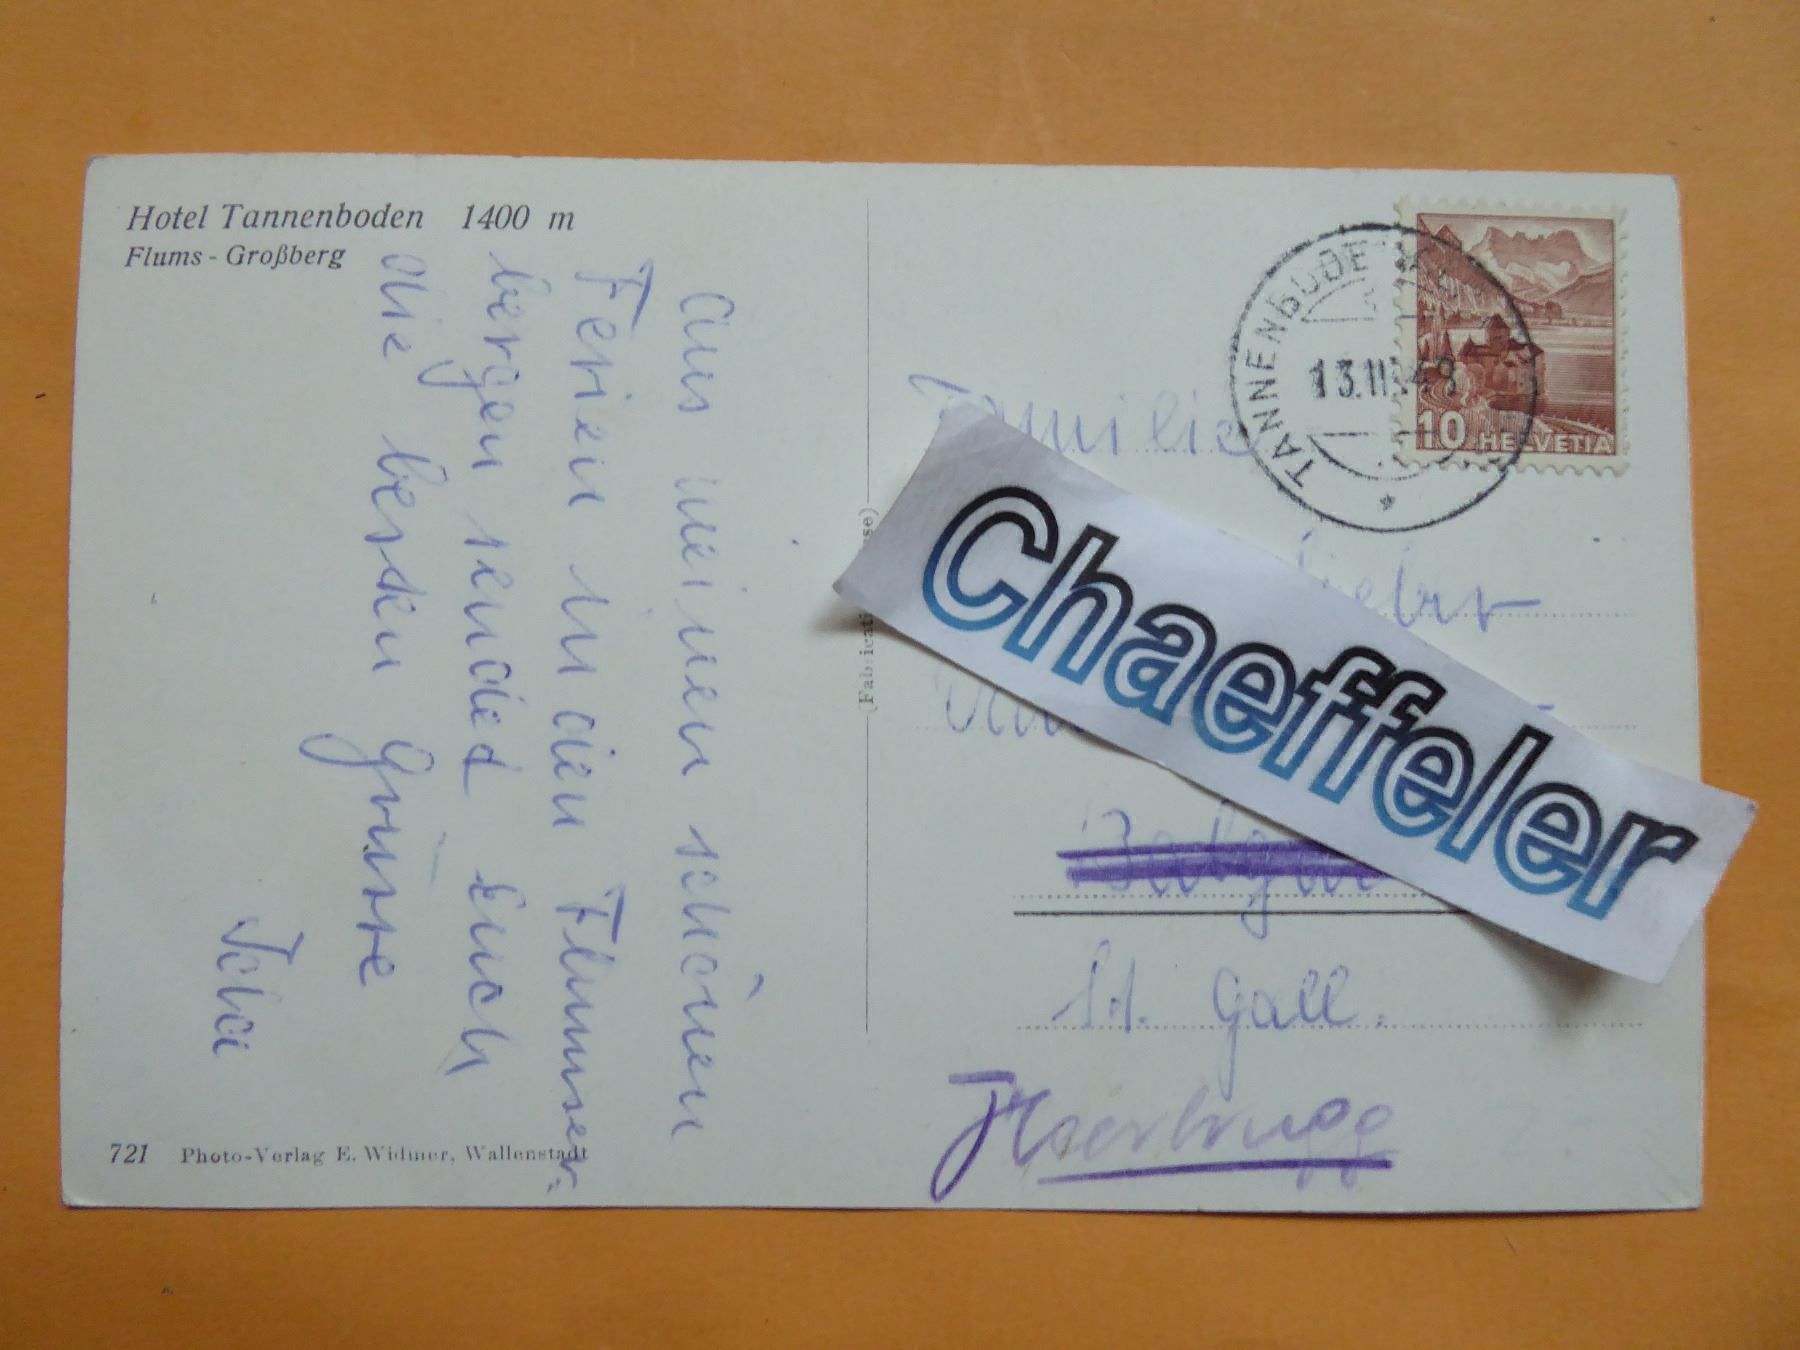 Hotel Tannenboden 1400 m
Flums - Großberg
Aus meinen schönen
Ferien in den Flumser-
bergen sendet Euch
die besten Grüsse
Ida
721 Photo-Verlag E. Widmer, Wallenstadt
TANNENBODEN
13.III.48
10 HELVETIA
Familie
Chaeffeler
St. Gall.
Heerbrugg